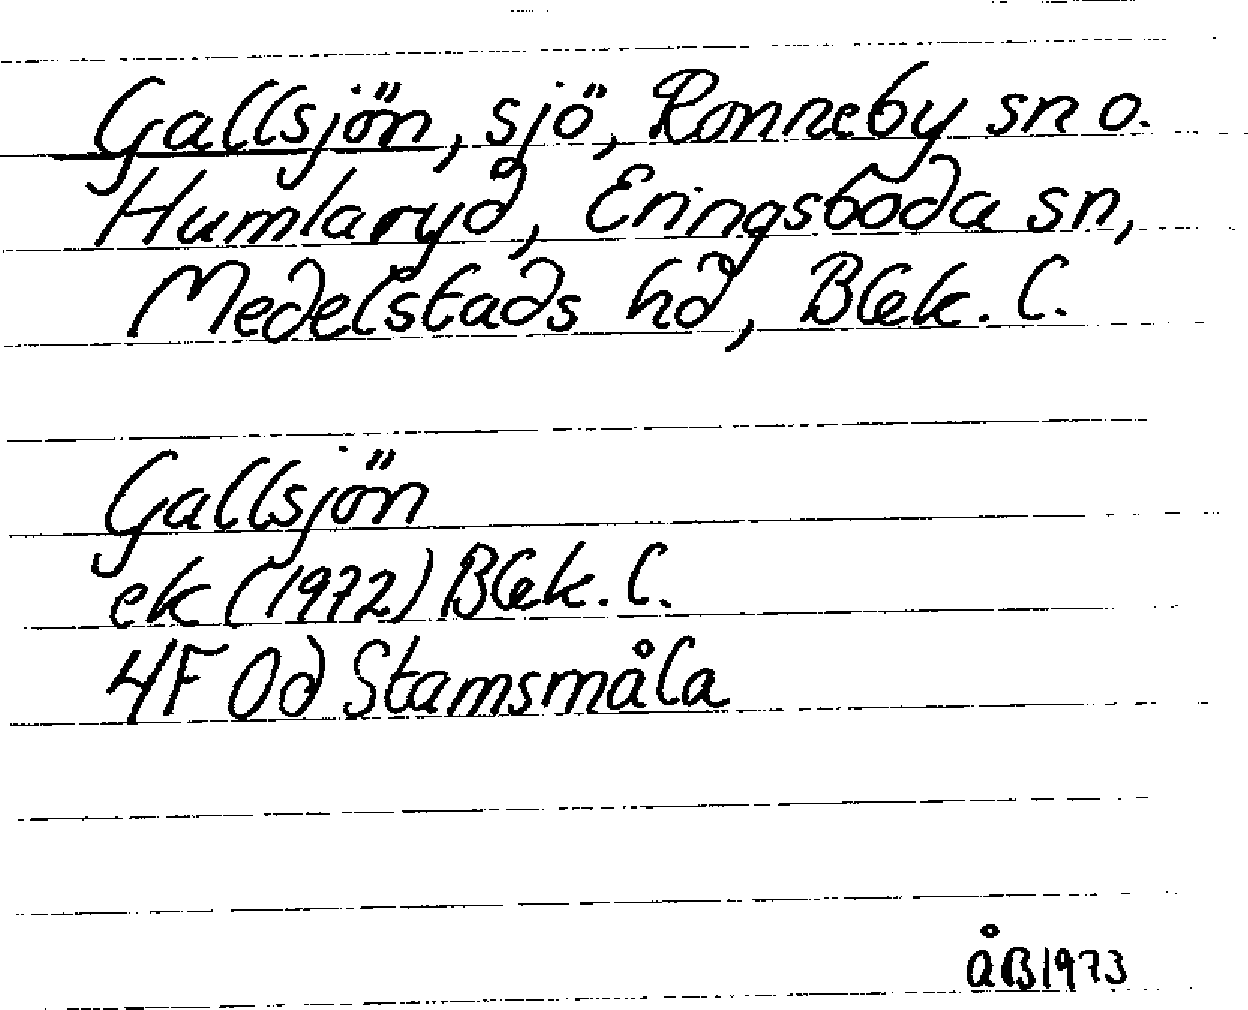 Gallsjön, sjö, Ronneby sn o.
Humlaryd, Eringsboda sn,
Medelstads hd, Blek. l.
Gallsjön
ek (1972) Blek. l.
4F 0d Stamsmåla
ÅB 1973